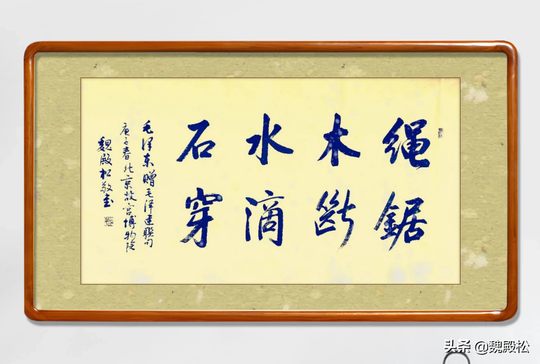 绳锯
木断
水滴
石穿
毛泽东赠毛泽建联句
庚子春北京故宫博物院
魏殿松敬书
头条 @魏殿松